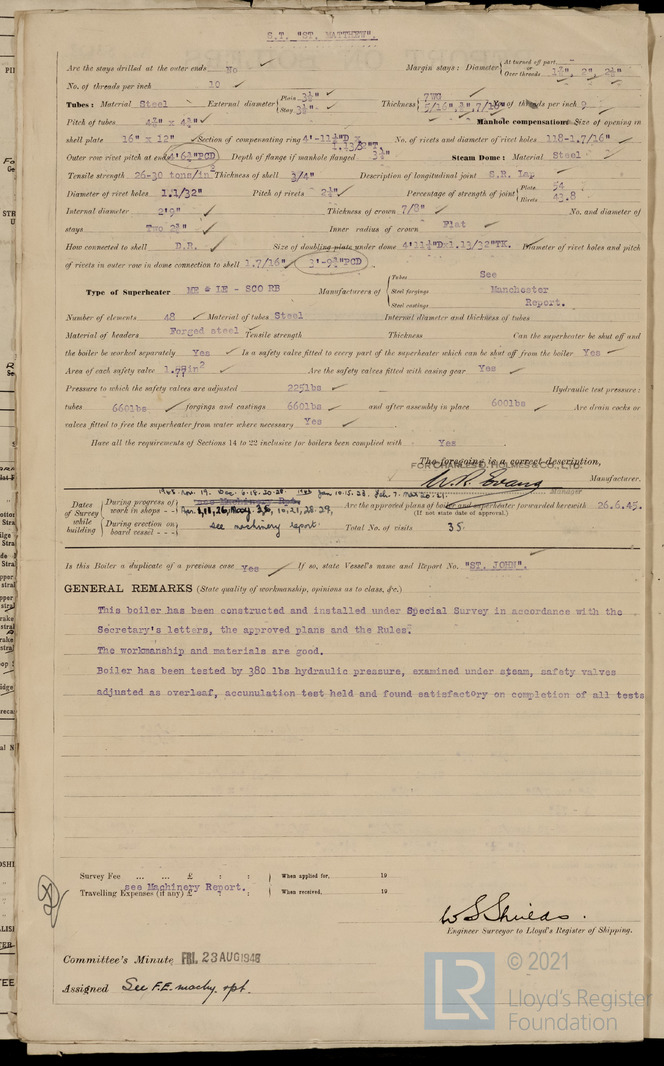 S.T. "ST. MATTHEW".
Are the stays drilled at the outer ends No Margin stays: Diameter { At turned off part, or Over threads 1¾", 2", 2¼"
No. of threads per inch 10
Tubes: Material Steel External diameter { Plain 3½" Stay 3½" Thickness { 7WG 5/16", ⅜", 7/16" No. of threads per inch 9
Pitch of tubes 4¾" x 4¾" Manhole compensation: Size of opening in
shell plate 16" x 12" Section of compensating ring 4'-11½"D x 1.13/32"T. No. of rivets and diameter of rivet holes 118-1.7/16"
Outer row rivet pitch at ends 4'6¾"PCD Depth of flange if manhole flanged 3¾" Steam Dome: Material Steel
Tensile strength 26-30 tons/in² Thickness of shell 3/4" Description of longitudinal joint S.R. Lap
Diameter of rivet holes 1.1/32" Pitch of rivets 2¼" Percentage of strength of joint { Plate 54 Rivets 43.8
Internal diameter 2'9" Thickness of crown 7/8" No. and diameter of
stays Two 2¾" Inner radius of crown Flat
How connected to shell D.R. Size of doubling plate under dome 4'11½"Dx1.13/32"TK. Diameter of rivet holes and pitch
of rivets in outer row in dome connection to shell 1.7/16" 3'-9¾"PCD
Type of Superheater ME & LE - SCO RB Manufacturers of { Tubes See
Steel forgings Manchester
Steel castings Report.
Number of elements 48 Material of tubes Steel Internal diameter and thickness of tubes
Material of headers Forged steel Tensile strength Thickness Can the superheater be shut off and
the boiler be worked separately Yes Is a safety valve fitted to every part of the superheater which can be shut off from the boiler Yes
Area of each safety valve 1.77in² Are the safety valves fitted with easing gear Yes
Pressure to which the safety valves are adjusted 225lbs Hydraulic test pressure:
tubes 660lbs forgings and castings 660lbs and after assembly in place 600lbs Are drain cocks or
valves fitted to free the superheater from water where necessary Yes
Have all the requirements of Sections 14 to 22 inclusive for boilers been complied with Yes
The foregoing is a correct description,
FOR CHARLES D. HOLMES & CO., LTD.
W.R. Evans Manufacturer.
Manager
Dates of Survey while building { During progress of work in shops - - 1945 Nov. 19. Dec. 6.18.20.28. 1946 Jan 10.15.23. Feb 7. Mar 20.21.
Are the approved plans of boiler and superheater forwarded herewith 26.6.45.
(If not state date of approval.)
During erection on board vessel - - - see machinery report. Total No. of visits 35.
Is this Boiler a duplicate of a previous case Yes If so, state Vessel's name and Report No. "ST. JOHN".
GENERAL REMARKS (State quality of workmanship, opinions as to class, &c.)
This boiler has been constructed and installed under Special Survey in accordance with the
Secretary's letters, the approved plans and the Rules.
The workmanship and materials are good.
Boiler has been tested by 380 lbs hydraulic pressure, examined under steam, safety valves
adjusted as overleaf, accumulation test held and found satisfactory on completion of all tests
Survey Fee ... ... £ : : When applied for, 19
see Machinery Report.
Travelling Expenses (if any) £ : : When received, 19
W S Shields.
Engineer Surveyor to Lloyd's Register of Shipping.
Committee's Minute FRI. 23 AUG 1946
Assigned See F.E. machy. rpt.
© 2021
LR Lloyd's Register
Foundation